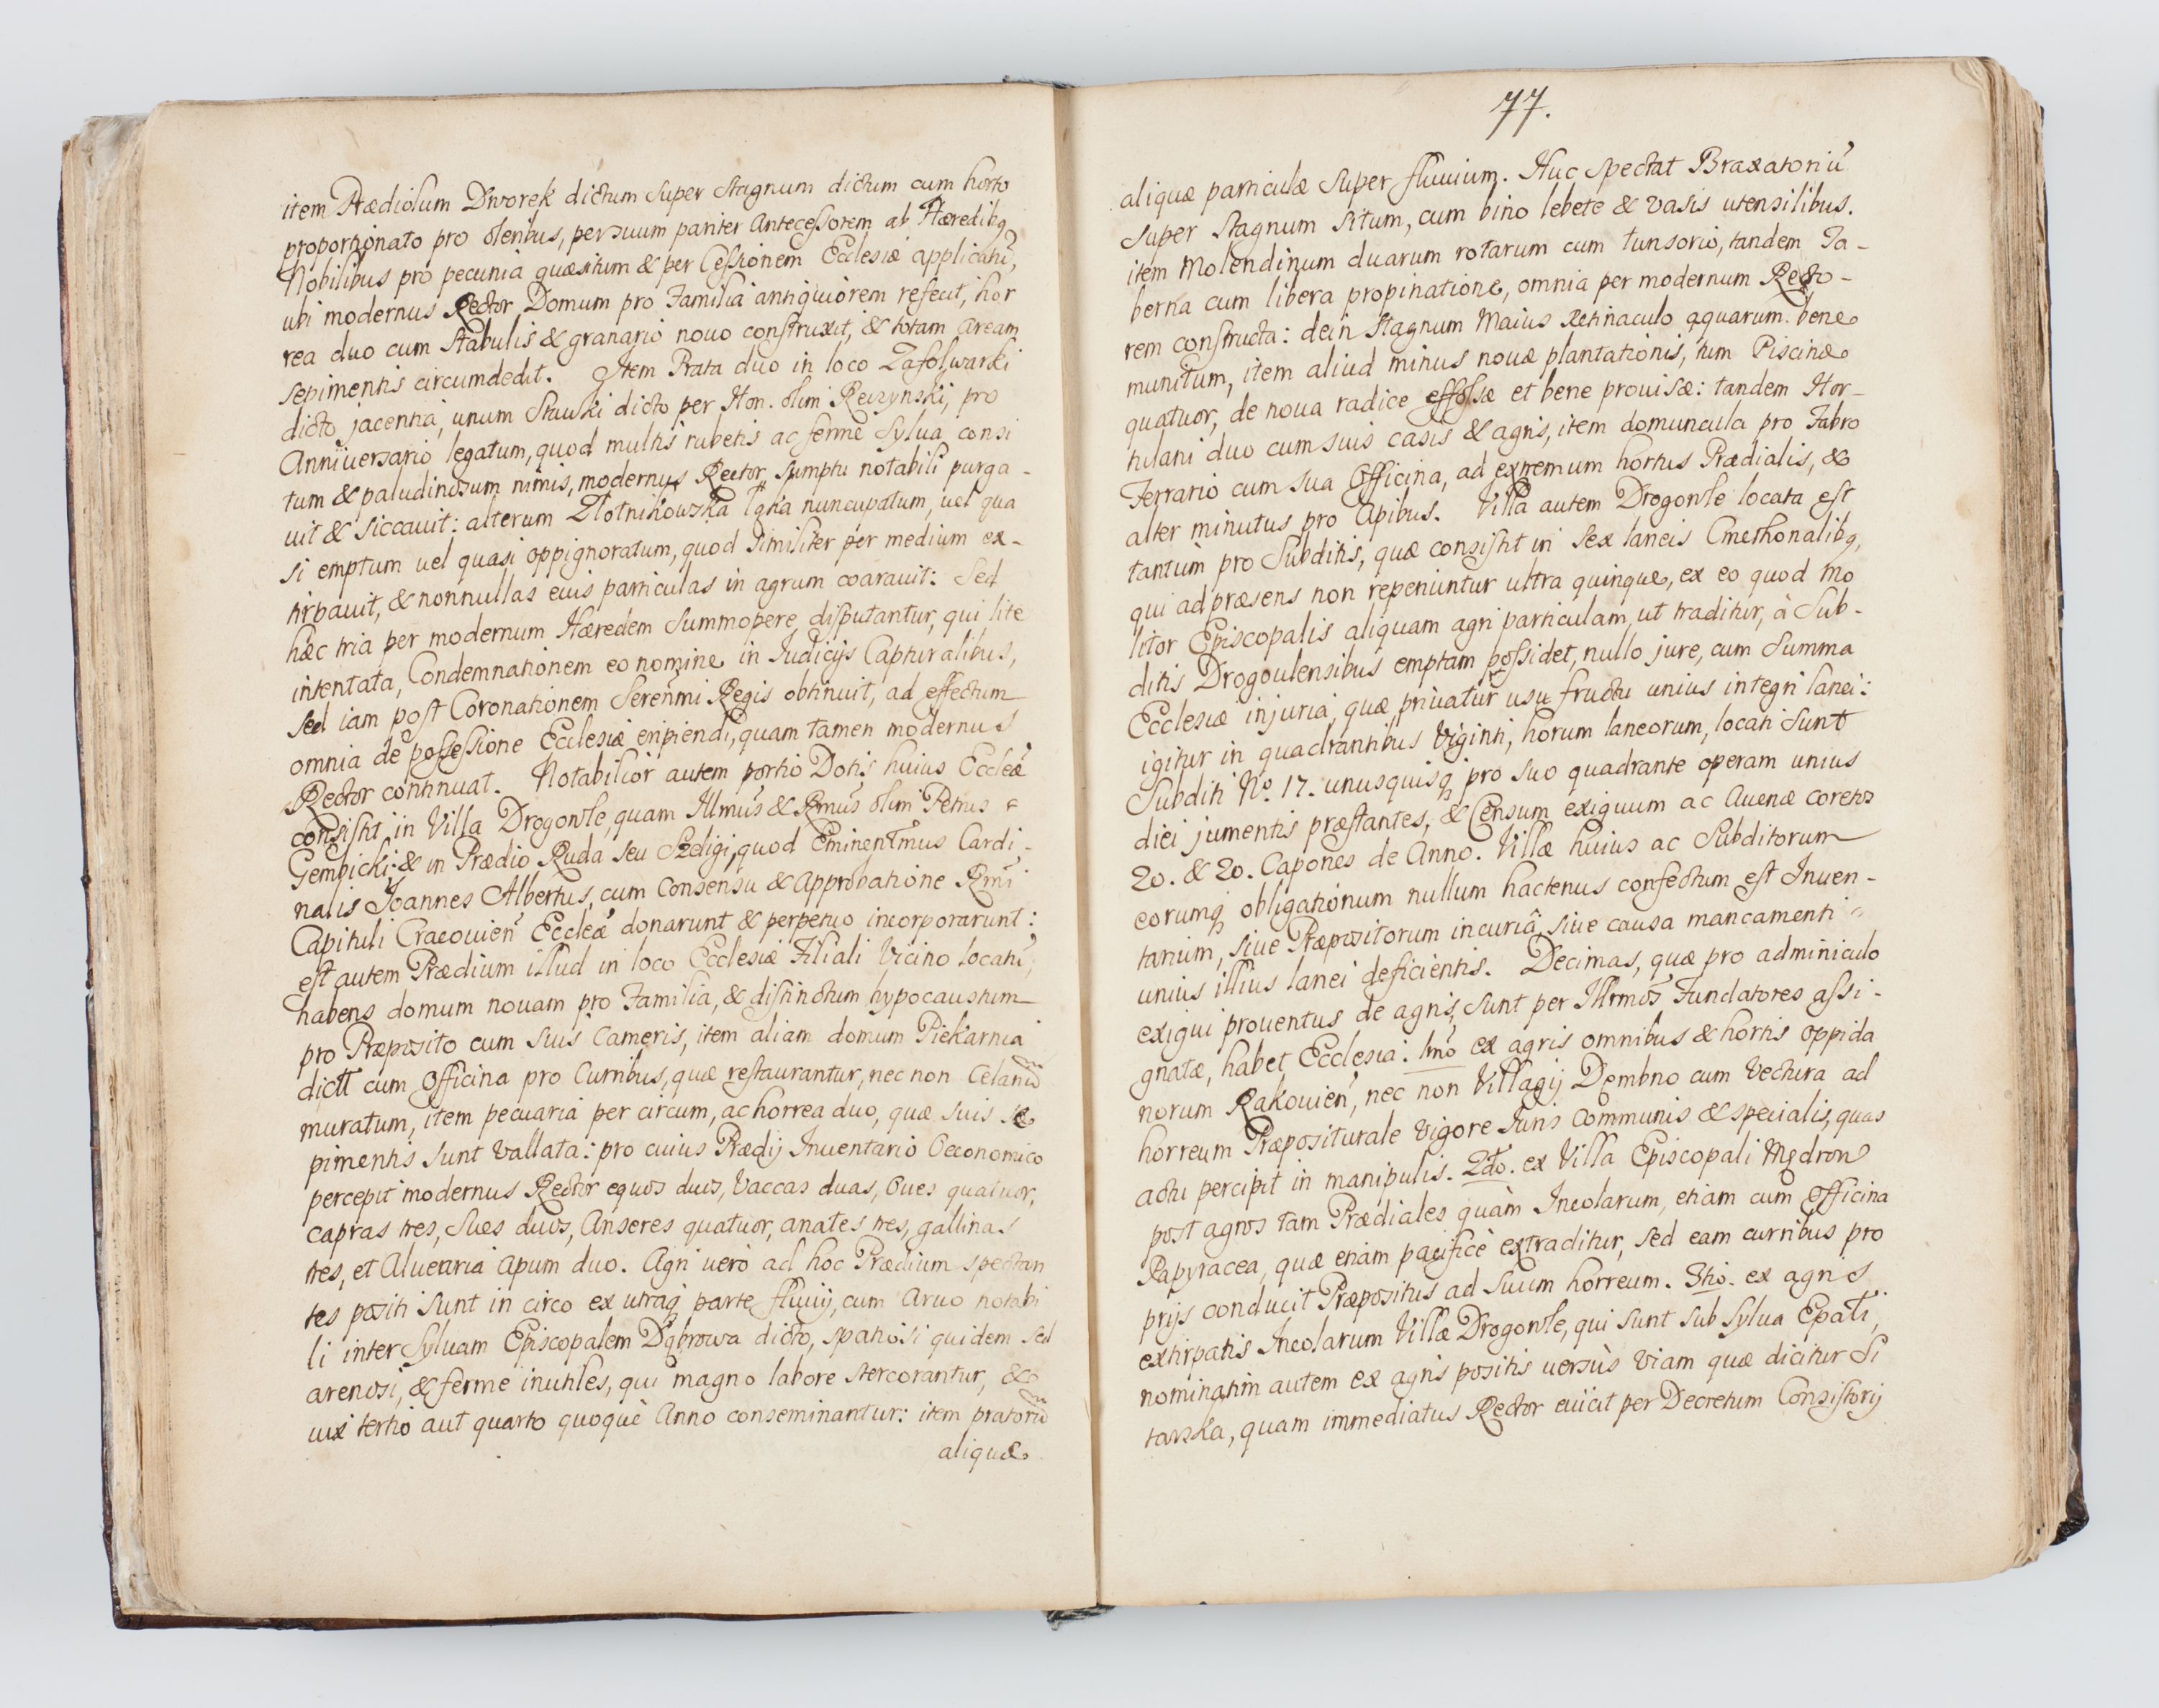 item Prædiolum Dworek dictum super stagnum dictum cum horto
proportionato pro oleribus, per suum pariter Antecessorem ab Hæredibq
Nobilibus pro pecunia quæsitum & per Cessionem Ecclesiæ applicatū,
ubi modernus Rector Domum pro Familia antiquiorem refecit, hor
rea duo cum stabulis & granario nouo construxit, & totam aream
sepimentis circumdedit. Item Prata duo in loco Zafolwarki
dicto jacentia, unum Stawki dicto per Hon. olim Reczynski, pro
Anniuersario legatum, quod multis rubetis ac ferme Sylua consi
tum & paludinosum nimis, modernus Rector sumptu notabili purga-
uit & siccauit: alterum Złotnikowska Łąka nuncupatum, uel qua
si emptum uel quasi oppignoratum, quod similiter per medium ex-
tirpauit, & nonnullas eius particulas in agrum coarauit: Sed
hæc tria per modernum Hæredem Summopere disputantur, qui lite
intentata, Condemnationem eo nomine in Iudicijs Capturalibus,
sed iam post Coronationem Sereñmi Regis obtinuit, ad effectum
omnia de possessione Ecclesiæ eripiendi, quam tamen modernus
Rector continuat. Notabilior autem portio Dotis huius Eccleæ
consistit in Villa Drogowle, quam Illmus & Rmus olim Petrus
Gembicki: & in Prædio Ruda seu Szeligi, quod Eminentmus Cardi-
nalis Joannes Albertus, cum Consensu & Approbatione Rmi
Capituli Cracouien Eccleæ donarunt & perpetuo incorporarunt:
est autem Prædium illud in loco Ecclesiæ Filiali Vicino locatū,
habens domum nouam pro Familia, & distinctum hypocaustum
pro Præposito cum suis Cameris, item aliam domum Piekarnia
dictā cum Officina pro Curribus, quæ restaurantur, nec non Celariū
muratum, item pecuaria per circum, ac horrea duo, quæ suis se
pimentis sunt vallata: pro cuius Prædij Inuentario Oeconomico
percepit modernus Rector equos duos, Vaccas duas, Oues quatuor,
capras tres, Sues duos, Anseres quatuor, anates tres, gallinas
tres, et Aluearia Apum duo. Agri uerò ad hoc Prædium spectan
tes positi sunt in circo ex utraq parte fluuij, cum Aruo notabi
li inter Syluam Episcopalem Dąbrowa dicto, spatiosi quidem sed
arenosi, & ferme inutiles, qui magno labore stercorantur, &
uix tertio aut quarto quoquè Anno conseminantur: item pratorū
aliquæ
77.
aliquæ particulæ super fluuium. Huc spectat Braxatoriū
super stagnum situm, cum bino lebete & vasis utensilibus.
item Molendinum duarum rotarum cum tunsorio, tandem Ta-
berna cum libera propinatione, omnia per modernum Recto-
rem constructa: dein stagnum Maius Retinaculo aquarum bene
munitum, item aliud minus nouæ plantationis, tum Piscinæ
quatuor, de noua radice effossæ et bene prouisæ: tandem Hor-
tulani duo cum suis casis & agris, item domuncula pro Fabro
Ferrario cum sua Officina, ad extremum hortus Prædialis, &
alter minutus pro Apibus. Villa autem Drogowle locata est
tantùm pro Subditis, quæ consistit in sex laneis Cmethonalibq,
qui ad præsens non reperiuntur ultra quinque, ex eo quod Mo
litor Episcopalis aliquam agri particulam, ut traditur, à Sub-
ditis Drogoulensibus emptam possidet, nullo jure, cum summa
Ecclesiæ injuria, quæ priuatur usu fructu unius integri lanei:
igitur in quadrantibus Viginti, horum laneorum, locati sunt
Subditi No. 17. unusquisq pro suo quadrante operam unius
diei jumentis præstantes, & Censum exiguum ac Auenæ coretos
20. & 20. Capones de Anno. Villæ huius ac Subditorum
eorumq obligationum nullum hactenus confectum est Inuen-
tarium, siue Præpositorum incuriâ, siue causa mancamenti
unius illius lanei deficientis. Decimas, quæ pro adminiculo
exigui prouentus de agris, sunt per Illrmos Fundatores assi-
gnatæ, habet Ecclesia: Imo ex agris omnibus & hortis oppida
norum Rakouien, nec non Villagij Dembno cum Vectura ad
horreum Præpositurale vigore Juris communis & specialis, quas
actu percipit in manipulis. 2do. ex Villa Episcopali Mędrow
post agros tam Prædiales quàm Incolarum, etiam cum Officina
Papyracea, quæ etiam pacificè extraditur, sed eam curribus pro
prijs conducit Præpositus ad suum horreum. 3tio. ex agris
extirpatis Incolarum Villæ Drogowle, qui sunt sub Sylua Epali,
nominatim autem ex agris positis uersùs Viam quæ dicitur Si
tarska, quam immediatus Rector euicit per Decretum Consistorij